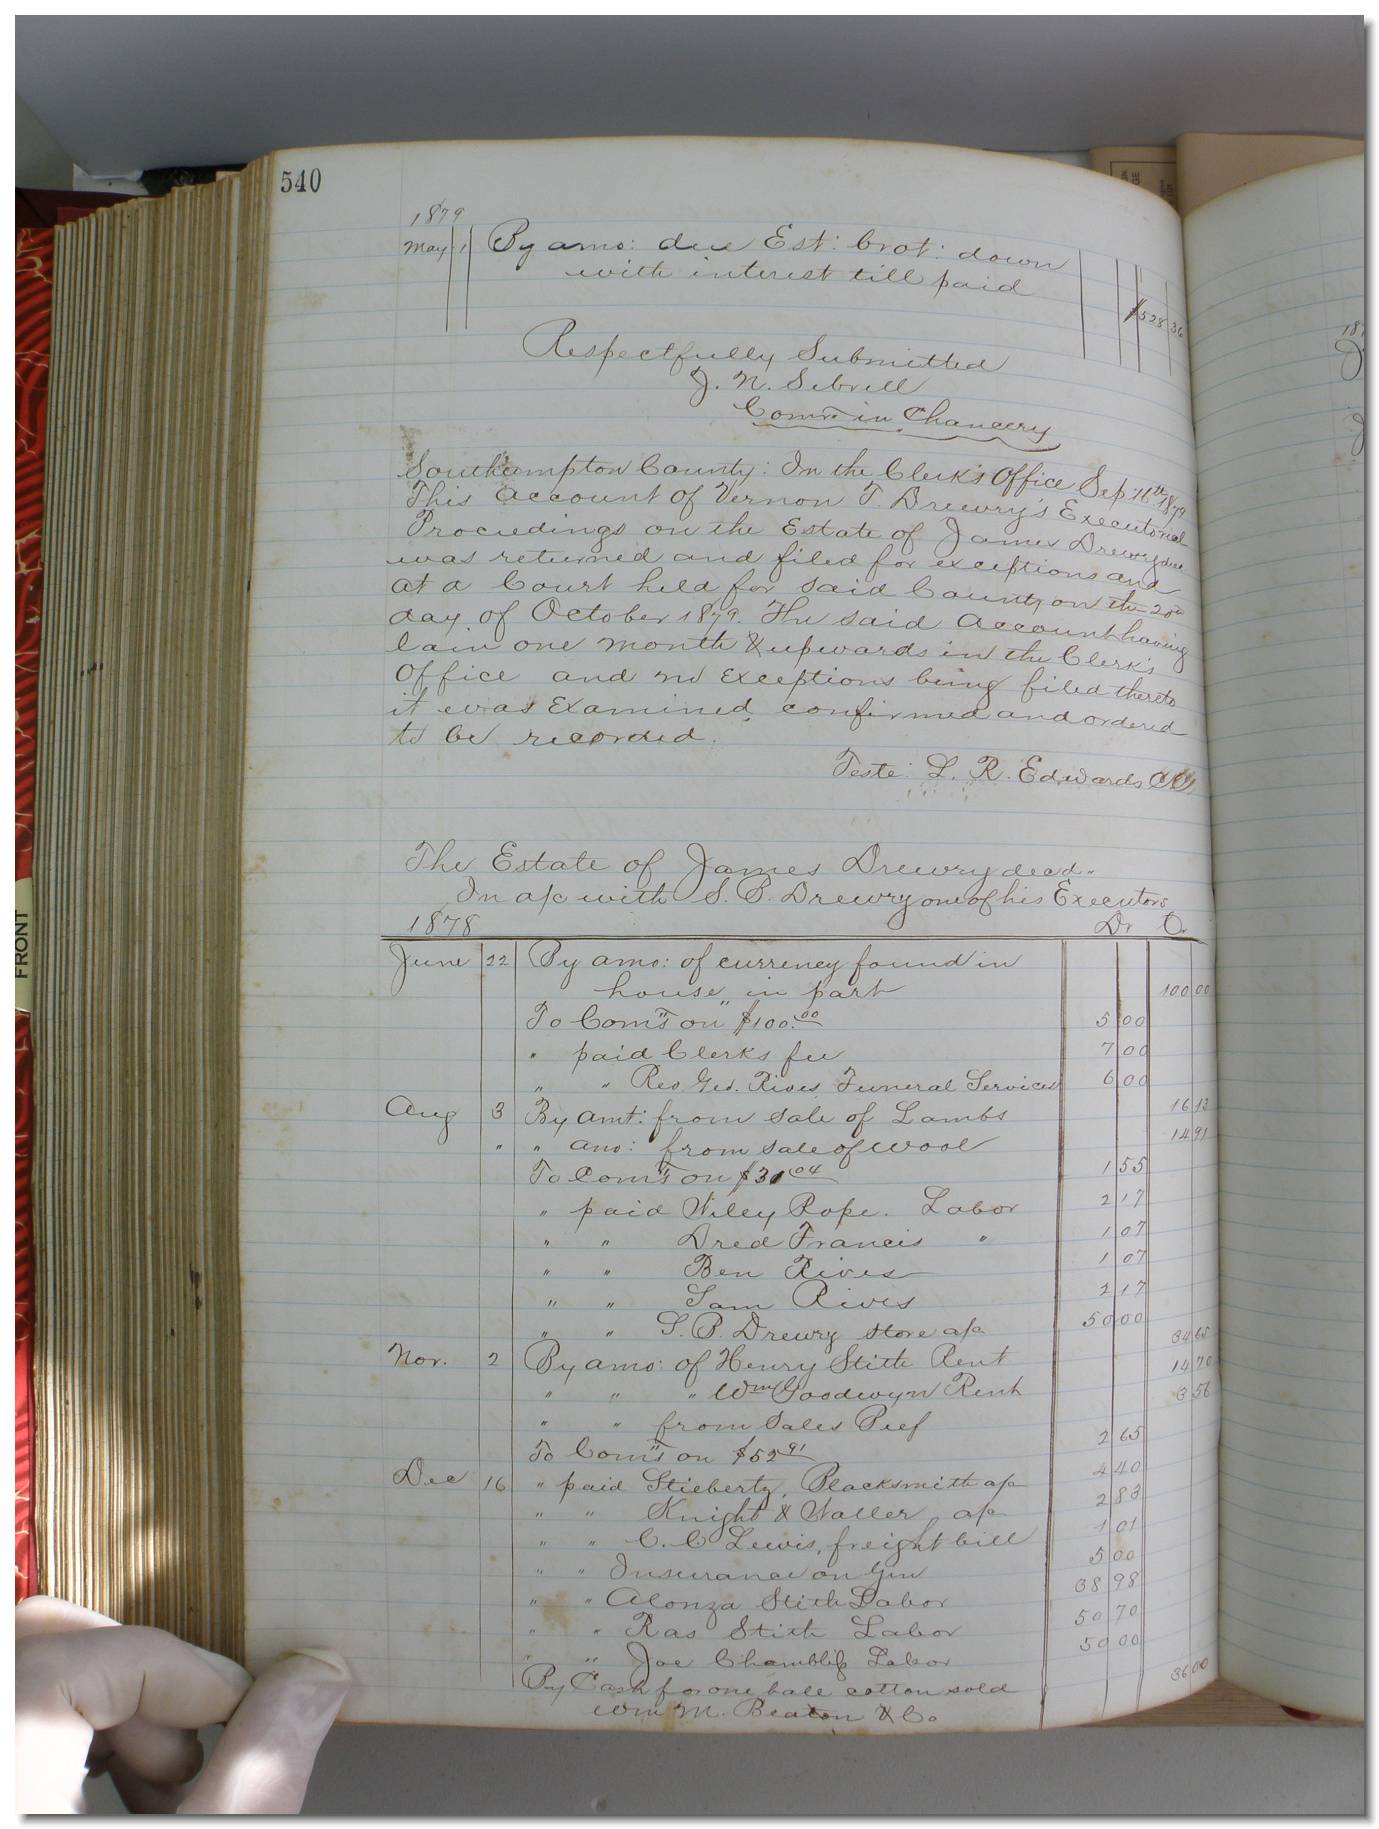 540
1879
May 1 By amo: due Est: brot: down
with interest till paid $528 36
Respectfully Submitted
J. N. Sebrell
Comr. in Chancery
Southampton County: In the Clerk's Office Sep 16th 1879
This Account of Vernon T. Drewry's Executorial
Proceedings on the Estate of James Drewry decd
was returned and filed for exceptions and
at a Court held for said County on the 20th
day of October 1879. The said Account having
lain one month & upwards in the Clerk's
Office and no Exceptions being filed thereto
it was Examined, confirmed and ordered
to be recorded.
Teste: L. R. Edwards
The Estate of James Drewry decd.
In a/c with S. B. Drewry one of his Executors
1878 Dr Cr
June 22 By amo: of currency found in
house, in part 100 00
To Comns on $100.00 5 00
" paid Clerks fee 7 00
" " Rev. Geo. Rives Funeral Services 6 00
Aug 3 By amt: from sale of Lambs 16 13
" " amo: from sale of wool 14 91
To Comns on $31 04 1 55
" paid Wiley Pope. Labor 2 17
" " Dred Francis " 1 07
" " Ben Rives 1 07
" " Sam Rives 2 17
" " S. B. Drewry store a/c 50 00
Nov. 2 By amo: of Henry Stith Rent 34 65
" " " Wm Goodwyn Rent 14 70
" " from Sales Beef 3 56
To Comns on $52 91 2 65
Dec 16 " paid Stiebertz, Blacksmith a/c 4 40
" " Knight & Waller a/c 2 83
" " C. C Lewis, freight bill 1 01
" " Insurance on Gin 5 00
" " Alonza Stith Labor 38 98
" " Ras Stith Labor 50 70
" " Joe Chambliss Labor 50 00
By Cash for one bale cotton sold
Wm M. Beaton & Co 36 00
FRONT